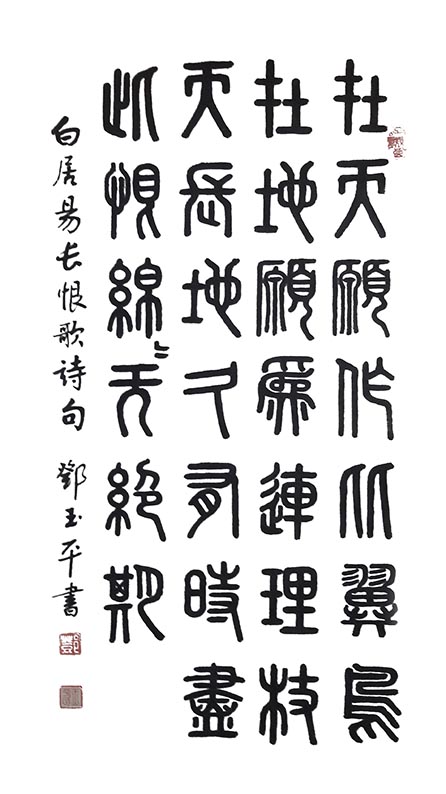 在天願作比翼鳥
在地願為連理枝
天長地久有時盡
此恨綿〻无絕期
白居易长恨歌詩句 鄧玉平書